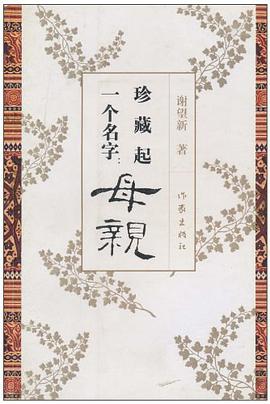 谢望新 著
珍藏起
一个名字:
母親
作家出版社